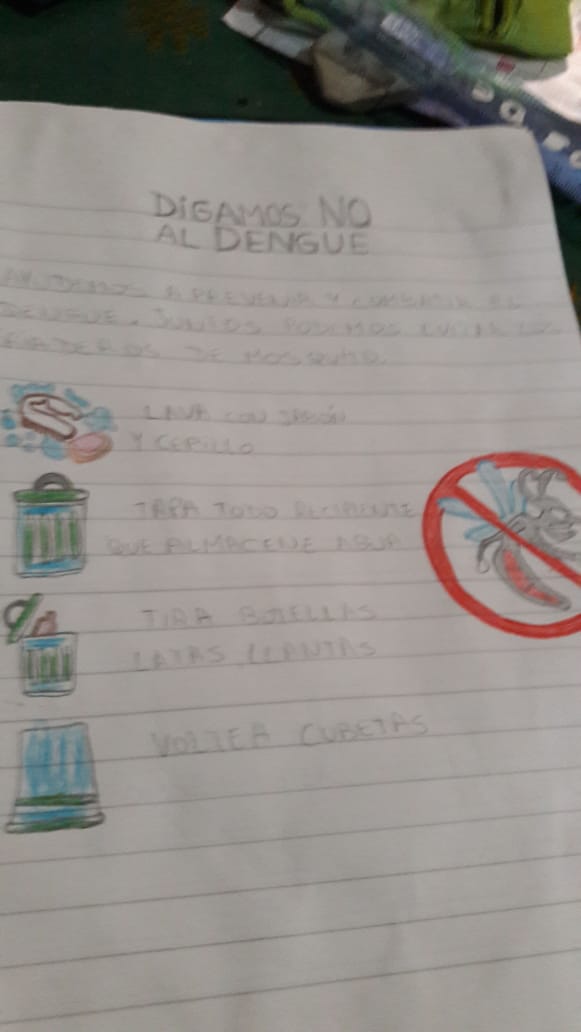 DiGAMOS NO
AL DENGUE
AYUDEMOS A PREVENIR Y COMBATIR EL
DENGUE. JUNTOS PODEMOS EVITAR LOS
DE MOSQUITO.
LAVA CON JABÓN
Y CEPILLO
TAPA TODO RECIPIENTE
QUE ALMACENE AGUA
TIRA BOTELLAS
LATAS LLANTAS
VOLTEA CUBETAS